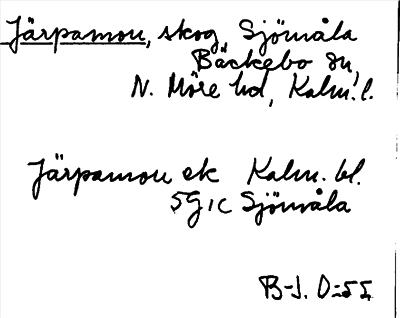 Järpamon, skog, Sjömåla
Bäckebo sn,
N. Möre hd, Kalm. l.
Järpamon ek Kalm. bl.
5G 1c Sjömåla
B-J. O-55